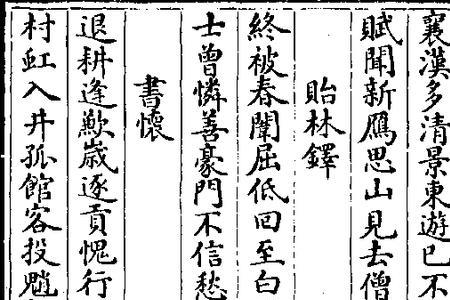 襄漢多清景東遊已不
賦聞新鴈思山見去僧
貽林鐸
終被春闈屈低回至白
士曾憐善豪門不信愁
書懷
退耕逢歉歲逐貢愧行
村虹入井孤館客投魈